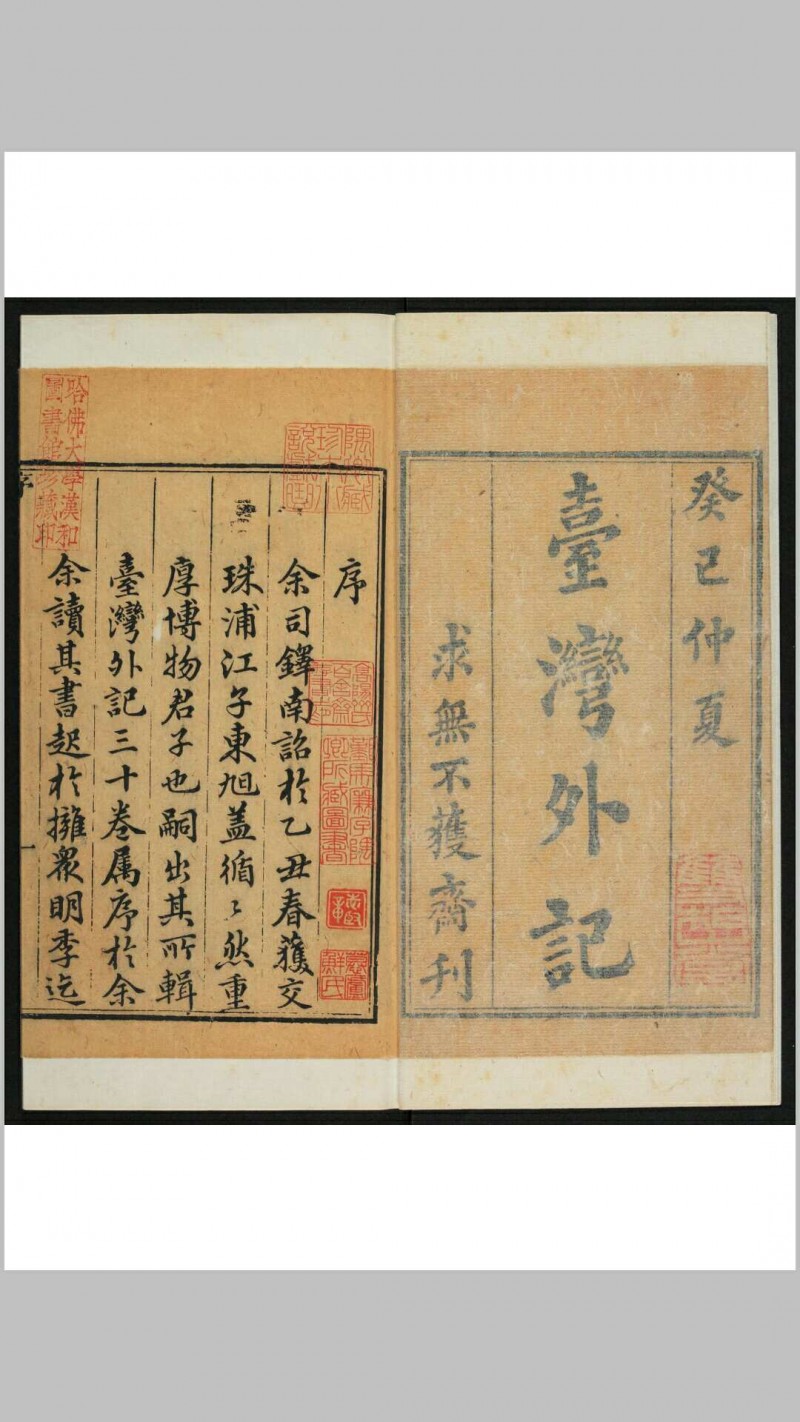 癸巳仲夏
臺灣外記
求無不獲齋刊
序
余司鐸南詔於乙丑春獲交
珠浦江子東旭蓋循〻然重
厚博物君子也嗣出其所輯
臺灣外記三十卷属序於余
余讀其書起於擁眾明季迄
序
一
哈佛大學漢和
圖書館珍藏印